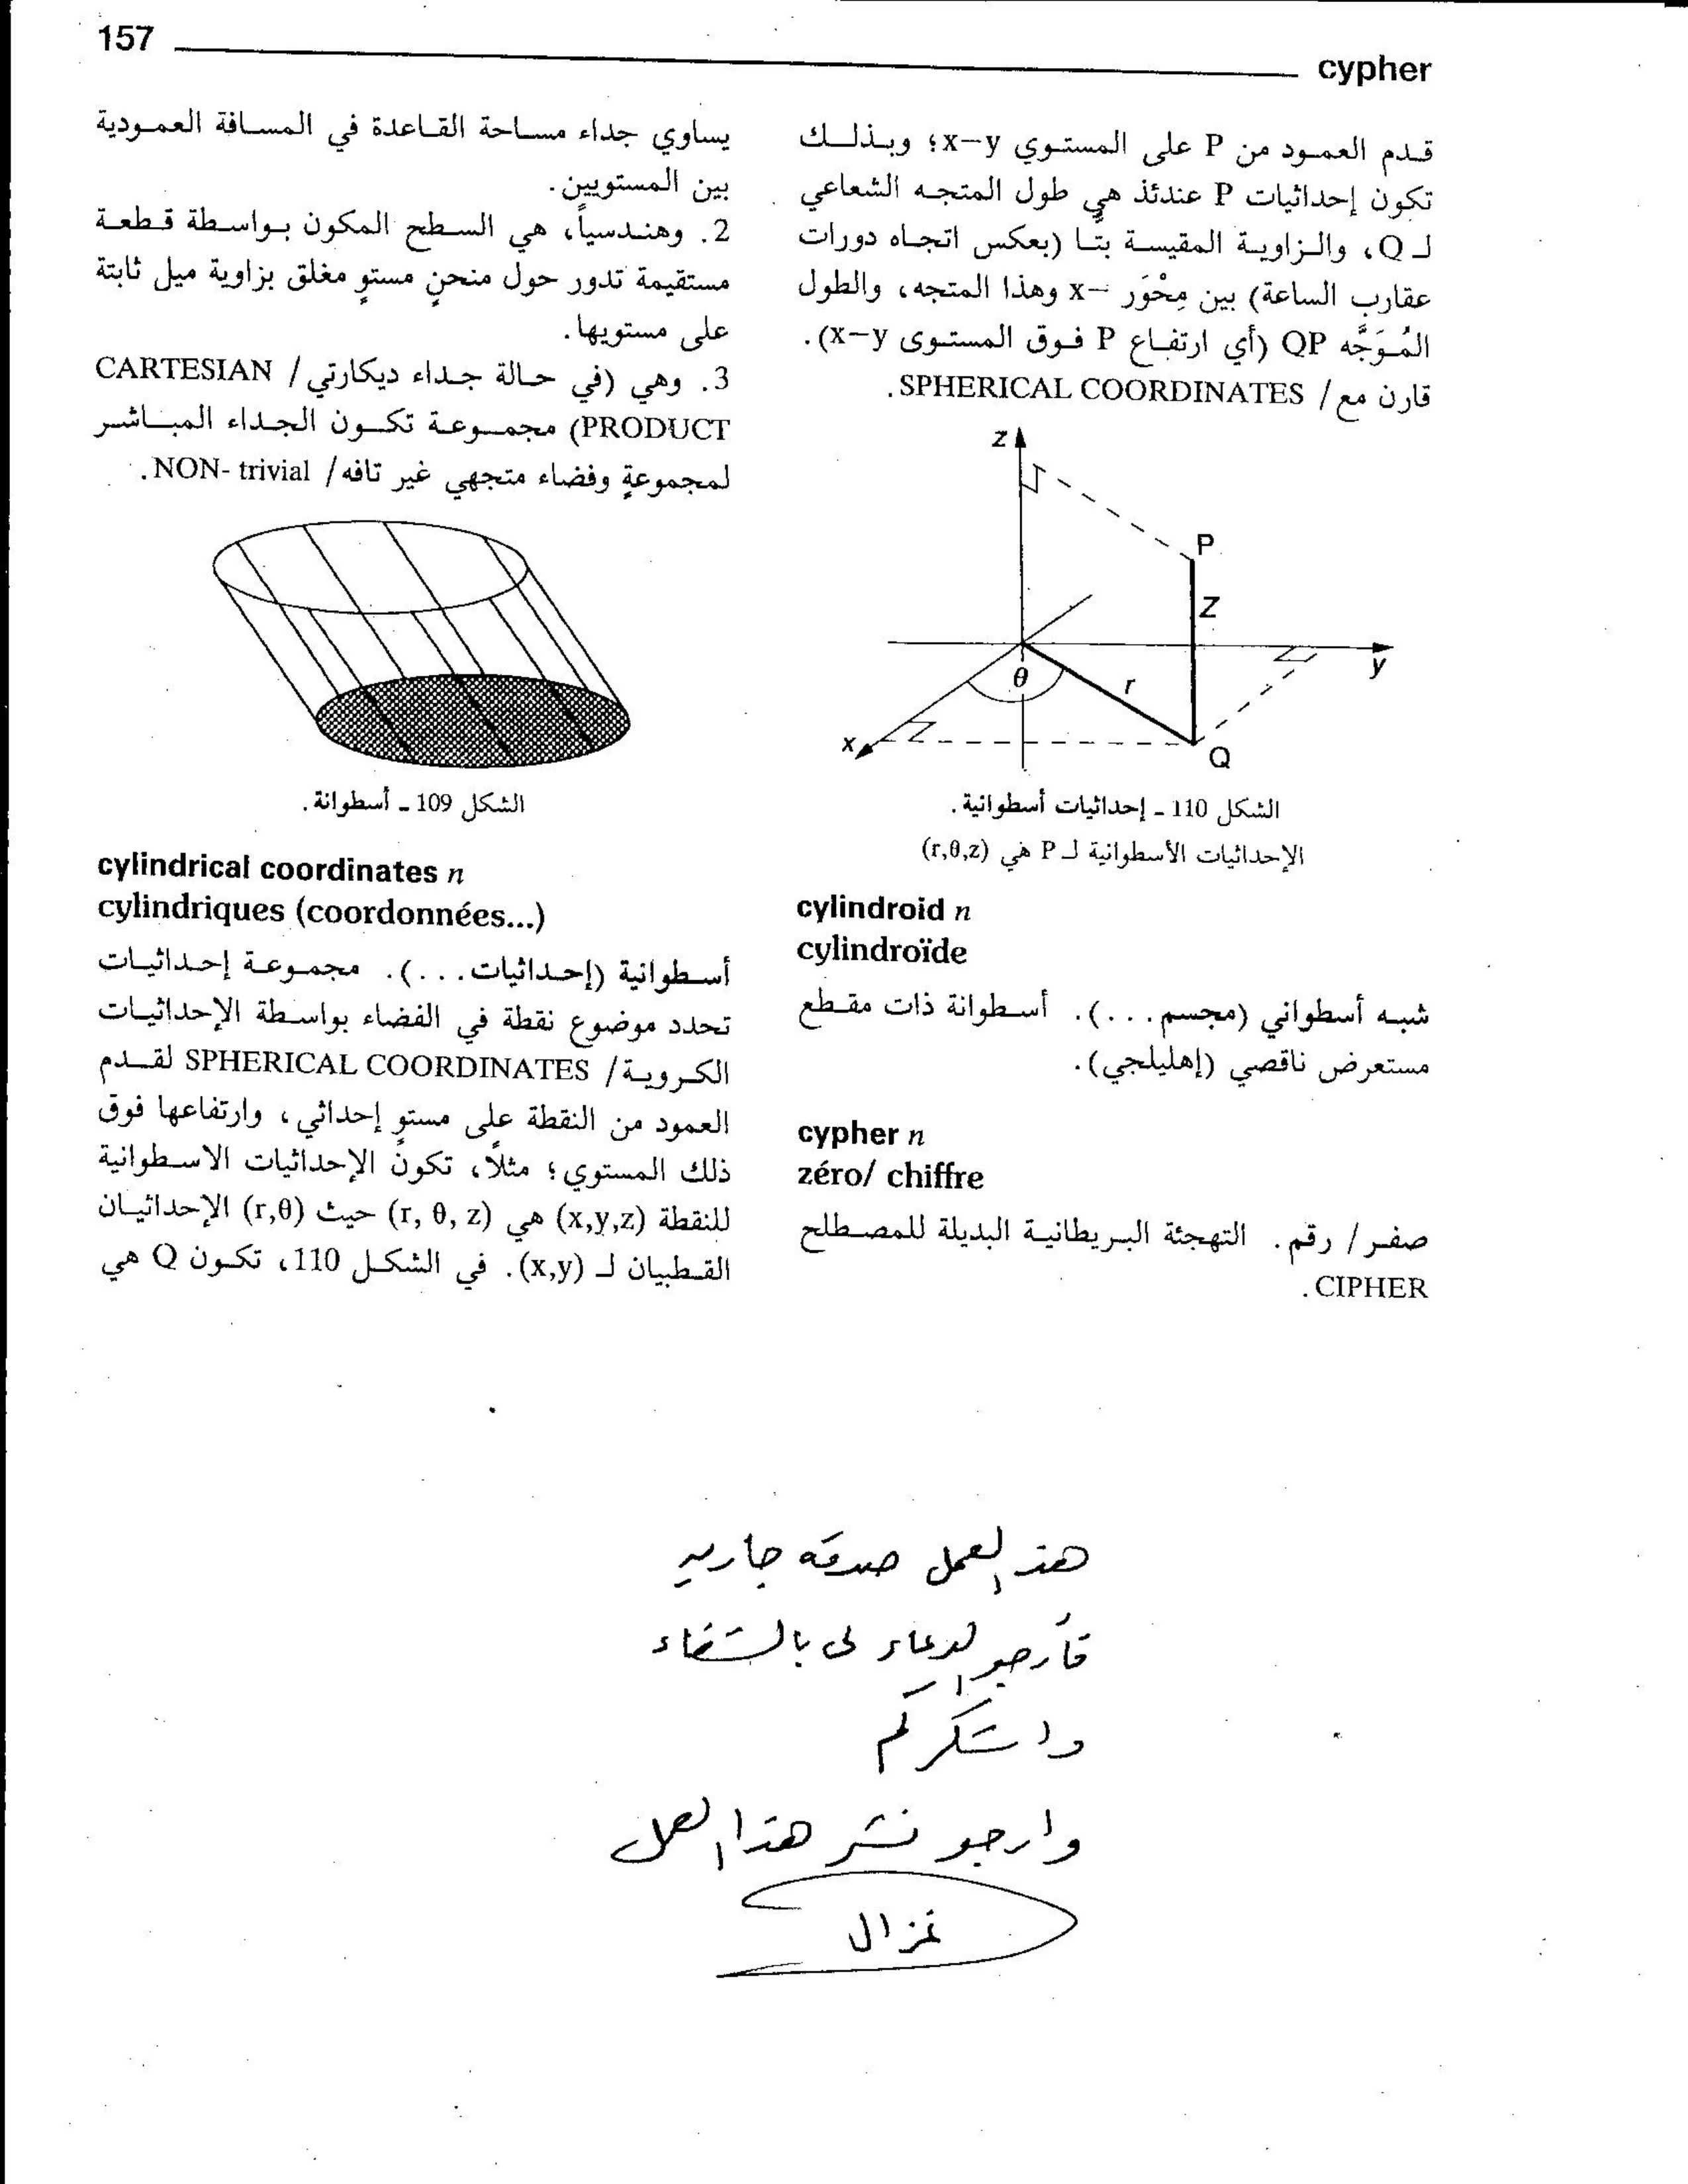 157
cypher
يساوي جداء مساحة القاعدة في المسافة العمودية
بين المستويين.
2. وهندسياً، هي السطح المكون بواسطة قطعة
مستقيمة تدور حول منحنٍ مستوٍ مغلق بزاوية ميل ثابتة
على مستويها.
3. وهي (في حالة جداء ديكارتي/ CARTESIAN
PRODUCT) مجموعة تكون الجداء المباشر
لمجموعةٍ وفضاء متجهي غير تافه/ NON- trivial.
الشكل 109 ـ أسطوانة.
cylindrical coordinates n
cylindriques (coordonnées...)
أسطوانية (إحداثيات...). مجموعة إحداثيات
تحدد موضوع نقطة في الفضاء بواسطة الإحداثيات
الكروية/ SPHERICAL COORDINATES لقدم
العمود من النقطة على مستوٍ إحداثي، وارتفاعها فوق
ذلك المستوي؛ مثلاً، تكون الإحداثيات الاسطوانية
للنقطة (x,y,z) هي (r, θ, z) حيث (r,θ) الإحداثيان
القطبيان لـ (x,y). في الشكل 110، تكون Q هي
قدم العمود من P على المستوي x–y؛ وبذلك
تكون إحداثيات P عندئذ هي طول المتجه الشعاعي
لـ Q، والزاوية المقيسة بتّا (بعكس اتجاه دورات
عقارب الساعة) بين مِحْوَر –x وهذا المتجه، والطول
المُوَجَّه QP (أي ارتفاع P فوق المستوى x–y).
قارن مع/ SPHERICAL COORDINATES.
z
P
Z
y
θ
r
x
Q
الشكل 110 ـ إحداثيات أسطوانية.
الإحداثيات الأسطوانية لـ P هي (r,θ,z)
cylindroid n
cylindroïde
شبه أسطواني (مجسم...). أسطوانة ذات مقطع
مستعرض ناقصي (إهليلجي).
cypher n
zéro/ chiffre
صفر/ رقم. التهجئة البريطانية البديلة للمصطلح
CIPHER.
هذ العمل صدقه جاريه
فأرجو الدعاء لى بالشفاء
واشكركم
وارجو نشر هذا العمل